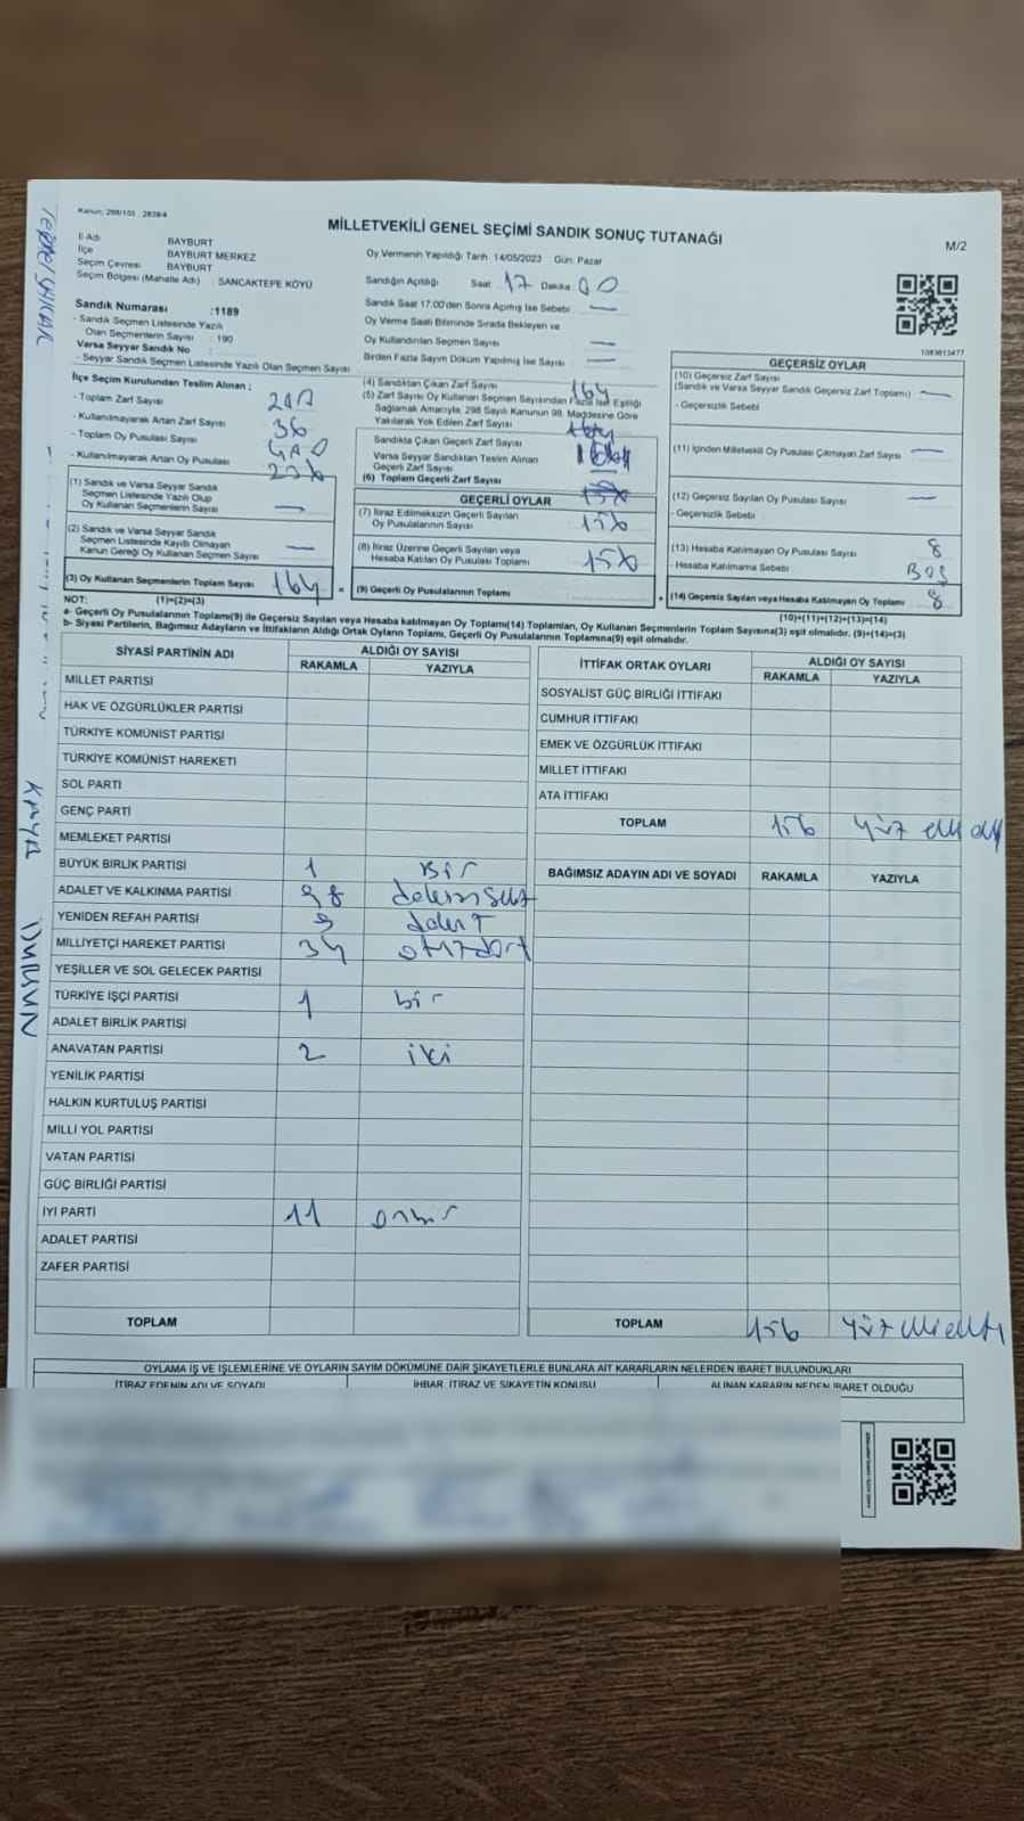 MİLLETVEKİLİ GENEL SEÇİMİ SANDIK SONUÇ TUTANAĞI
M/2
İl Adı BAYBURT
İlçe BAYBURT MERKEZ
Seçim Çevresi BAYBURT
Seçim Bölgesi (Mahalle Adı) : SANCAKTEPE KÖYÜ
Oy Vermenin Yapıldığı Tarih 14/05/2023 Gün: Pazar
Sandığın Açıldığı Saat 17 Dakika 00
Sandık Saat 17:00'den Sonra Açılmış İse Sebebi
Oy Verme Saati Bitiminde Sırada Bekleyen ve
Oy Kullandırılan Seçmen Sayısı
Birden Fazla Sayım Döküm Yapılmış İse Sayısı
Sandık Numarası :1189
- Sandık Seçmen Listesinde Yazılı
Olan Seçmenlerin Sayısı : 190
Varsa Seyyar Sandık No
- Seyyar Sandık Seçmen Listesinde Yazılı Olan Seçmen Sayısı
İlçe Seçim Kurulundan Teslim Alınan :
- Toplam Zarf Sayısı
- Kullanılmayarak Artan Zarf Sayısı 36
- Toplam Oy Pusulası Sayısı
- Kullanılmayarak Artan Oy Pusulası
(1) Sandık ve Varsa Seyyar Sandık
Seçmen Listesinde Yazılı Olup
Oy Kullanan Seçmenlerin Sayısı
(2) Sandık ve Varsa Seyyar Sandık
Seçmen Listesinde Kayıtlı Olmayan
Kanun Gereği Oy Kullanan Seçmen Sayısı
(3) Oy Kullanan Seçmenlerin Toplam Sayısı 164
(1)+(2)=(3)
(4) Sandıktan Çıkan Zarf Sayısı 164
(5) Zarf Sayısı Oy Kullanan Seçmen Sayısından Fazla İse Eşitliği
Sağlamak Amacıyla, 298 Sayılı Kanunun 98. Maddesine Göre
Yakılarak Yok Edilen Zarf Sayısı
Sandıkta Çıkan Geçerli Zarf Sayısı
Varsa Seyyar Sandıktan Teslim Alınan
Geçerli Zarf Sayısı
(6) Toplam Geçerli Zarf Sayısı
GEÇERLİ OYLAR
(7) İtiraz Edilmeksizin Geçerli Sayılan
Oy Pusulalarının Sayısı 156
(8) İtiraz Üzerine Geçerli Sayılan veya
Hesaba Katılan Oy Pusulası Toplamı 156
= (9) Geçerli Oy Pusulalarının Toplamı
GEÇERSİZ OYLAR
(10) Geçersiz Zarf Sayısı
(Sandık ve Varsa Seyyar Sandık Geçersiz Zarf Toplamı)
- Geçersizlik Sebebi
(11) İçinden Milletvekili Oy Pusulası Çıkmayan Zarf Sayısı
(12) Geçersiz Sayılan Oy Pusulası Sayısı
- Geçersizlik Sebebi
(13) Hesaba Katılmayan Oy Pusulası Sayısı 8
- Hesaba Katılmama Sebebi BOŞ
+ (14) Geçersiz Sayılan veya Hesaba Katılmayan Oy Toplamı 8
(10)+(11)+(12)+(13)=(14)
NOT:
a- Geçerli Oy Pusulalarının Toplamı(9) ile Geçersiz Sayılan veya Hesaba katılmayan Oy Toplamı(14) Toplamları, Oy Kullanan Seçmenlerin Toplam Sayısına(3) eşit olmalıdır. (9)+(14)=(3)
b- Siyasi Partilerin, Bağımsız Adayların ve İttifakların Aldığı Ortak Oyların Toplamı, Geçerli Oy Pusulalarının Toplamına(9) eşit olmalıdır.
SİYASİ PARTİNİN ADI ALDIĞI OY SAYISI
RAKAMLA YAZIYLA
MİLLET PARTİSİ
HAK VE ÖZGÜRLÜKLER PARTİSİ
TÜRKİYE KOMÜNİST PARTİSİ
TÜRKİYE KOMÜNİST HAREKETİ
SOL PARTİ
GENÇ PARTİ
MEMLEKET PARTİSİ
BÜYÜK BİRLİK PARTİSİ 1 Bir
ADALET VE KALKINMA PARTİSİ 98
YENİDEN REFAH PARTİSİ 9
MİLLİYETÇİ HAREKET PARTİSİ 34 otuzdört
YEŞİLLER VE SOL GELECEK PARTİSİ
TÜRKİYE İŞÇİ PARTİSİ 1 bir
ADALET BİRLİK PARTİSİ
ANAVATAN PARTİSİ 2 iki
YENİLİK PARTİSİ
HALKIN KURTULUŞ PARTİSİ
MİLLİ YOL PARTİSİ
VATAN PARTİSİ
GÜÇ BİRLİĞİ PARTİSİ
İYİ PARTİ 11 onbir
ADALET PARTİSİ
ZAFER PARTİSİ
TOPLAM
İTTİFAK ORTAK OYLARI ALDIĞI OY SAYISI
RAKAMLA YAZIYLA
SOSYALİST GÜÇ BİRLİĞİ İTTİFAKI
CUMHUR İTTİFAKI
EMEK VE ÖZGÜRLÜK İTTİFAKI
MİLLET İTTİFAKI
ATA İTTİFAKI
TOPLAM 156 yüz
BAĞIMSIZ ADAYIN ADI VE SOYADI RAKAMLA YAZIYLA
TOPLAM 156 yüz
OYLAMA İŞ VE İŞLEMLERİNE VE OYLARIN SAYIM DÖKÜMÜNE DAİR ŞİKAYETLERLE BUNLARA AİT KARARLARIN NELERDEN İBARET BULUNDUKLARI
İTİRAZ EDENİN ADI VE SOYADI İHBAR, İTİRAZ VE ŞİKAYETİN KONUSU ALINAN KARARIN NEDEN İBARET OLDUĞU